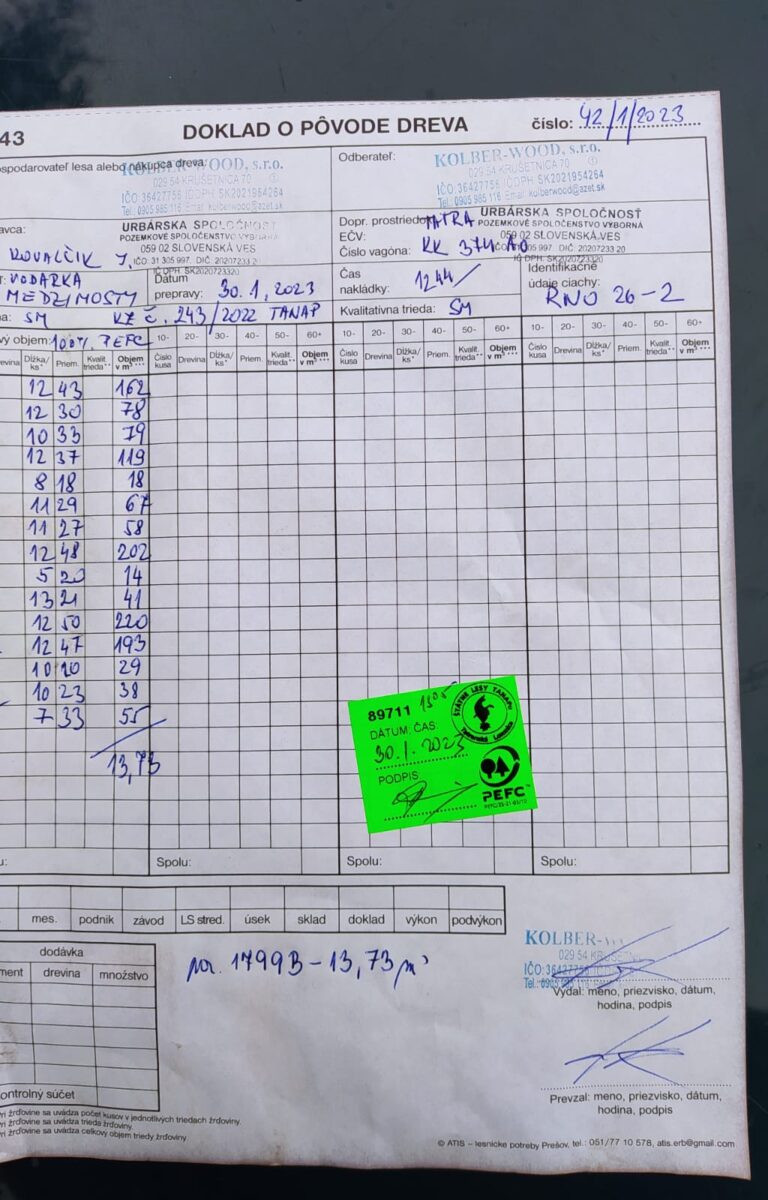 43
DOKLAD O PÔVODE DREVA
číslo: 42/1/2023
spodarovateľ lesa alebo nákupca dreva:
KOLBER-WOOD, s.r.o.
029 54 KRUŠETNICA 70 ①
IČO: 36427756 IČ DPH: SK2021954264
Tel.: 0905 985 116 Email: kolberwood@azet.sk
Odberateľ:
KOLBER-WOOD, s.r.o.
029 54 KRUŠETNICA 70 ①
IČO: 36427756 IČ DPH: SK2021954264
Tel.: 0905 985 116 Email: kolberwood@azet.sk
avca:
KOVALČIK J.
URBÁRSKA SPOLOČNOSŤ
POZEMKOVÉ SPOLOČENSTVO VÝBORNÁ
059 02 SLOVENSKÁ VES
IČO: 31 305 997 DIČ: 20207233 20
IČ DPH: SK2020723320
Dopr. prostriedok: TATRA
EČV: KK 374 AO
Číslo vagóna:
URBÁRSKA SPOLOČNOSŤ
POZEMKOVÉ SPOLOČENSTVO VÝBORNÁ
059 02 SLOVENSKÁ VES
IČO: 31 305 997 DIČ: 20207233 20
IČ DPH: SK2020723320
VODARKA
MEDZIMOSTY
Dátum prepravy: 30.1.2023
Čas nakládky: 1244
Identifikačné údaje ciachy:
RNO 26-2
na: SM KZ č. 243/2022 TANAP
Kvalitatívna trieda: SM
vý objem: 100% PEFC 10- 20- 30- 40- 50- 60+ 10- 20- 30- 40- 50- 60+ 10- 20- 30- 40- 50- 60+
revina Dĺžka/ks* Priem. Kvalit. trieda** Objem v m³*** Číslo kusa Drevina Dĺžka/ks* Priem. Kvalit. trieda** Objem v m³*** Číslo kusa Drevina Dĺžka/ks* Priem. Kvalit. trieda** Objem v m³*** Číslo kusa Drevina Dĺžka/ks* Priem. Kvalit. trieda** Objem v m³***
12 43 162
12 30 78
10 33 79
12 37 119
8 18 18
11 29 67
11 27 58
12 48 202
5 20 14
13 21 41
12 50 220
12 47 193
10 20 29
10 23 38
7 33 55
13,73
89711 1305
DÁTUM, ČAS
30.1.2023
PODPIS
ŠTÁTNE LESY TANAPU
Tatranská Lomnica
PEFC™
PEFC/25-21-03/10
u: Spolu: Spolu: Spolu:
mes. podnik závod LS stred. úsek sklad doklad výkon podvýkon
dodávka
ment drevina množstvo
por. 1799B - 13,73 m³
KOLBER-W
029 54 KRUŠETN
IČO: 36427756
Tel.: 0905 985
Vydal: meno, priezvisko, dátum,
hodina, podpis
Prevzal: meno, priezvisko, dátum,
hodina, podpis
ontrolný súčet
ri žrďovine sa uvádza počet kusov v jednotlivých triedach žrďoviny.
ri žrďovine sa uvádza trieda žrďoviny.
ri žrďovine sa uvádza celkový objem triedy žrďoviny.
© ATIS – lesnícke potreby Prešov, tel.: 051/77 10 578, atis.erb@gmail.com